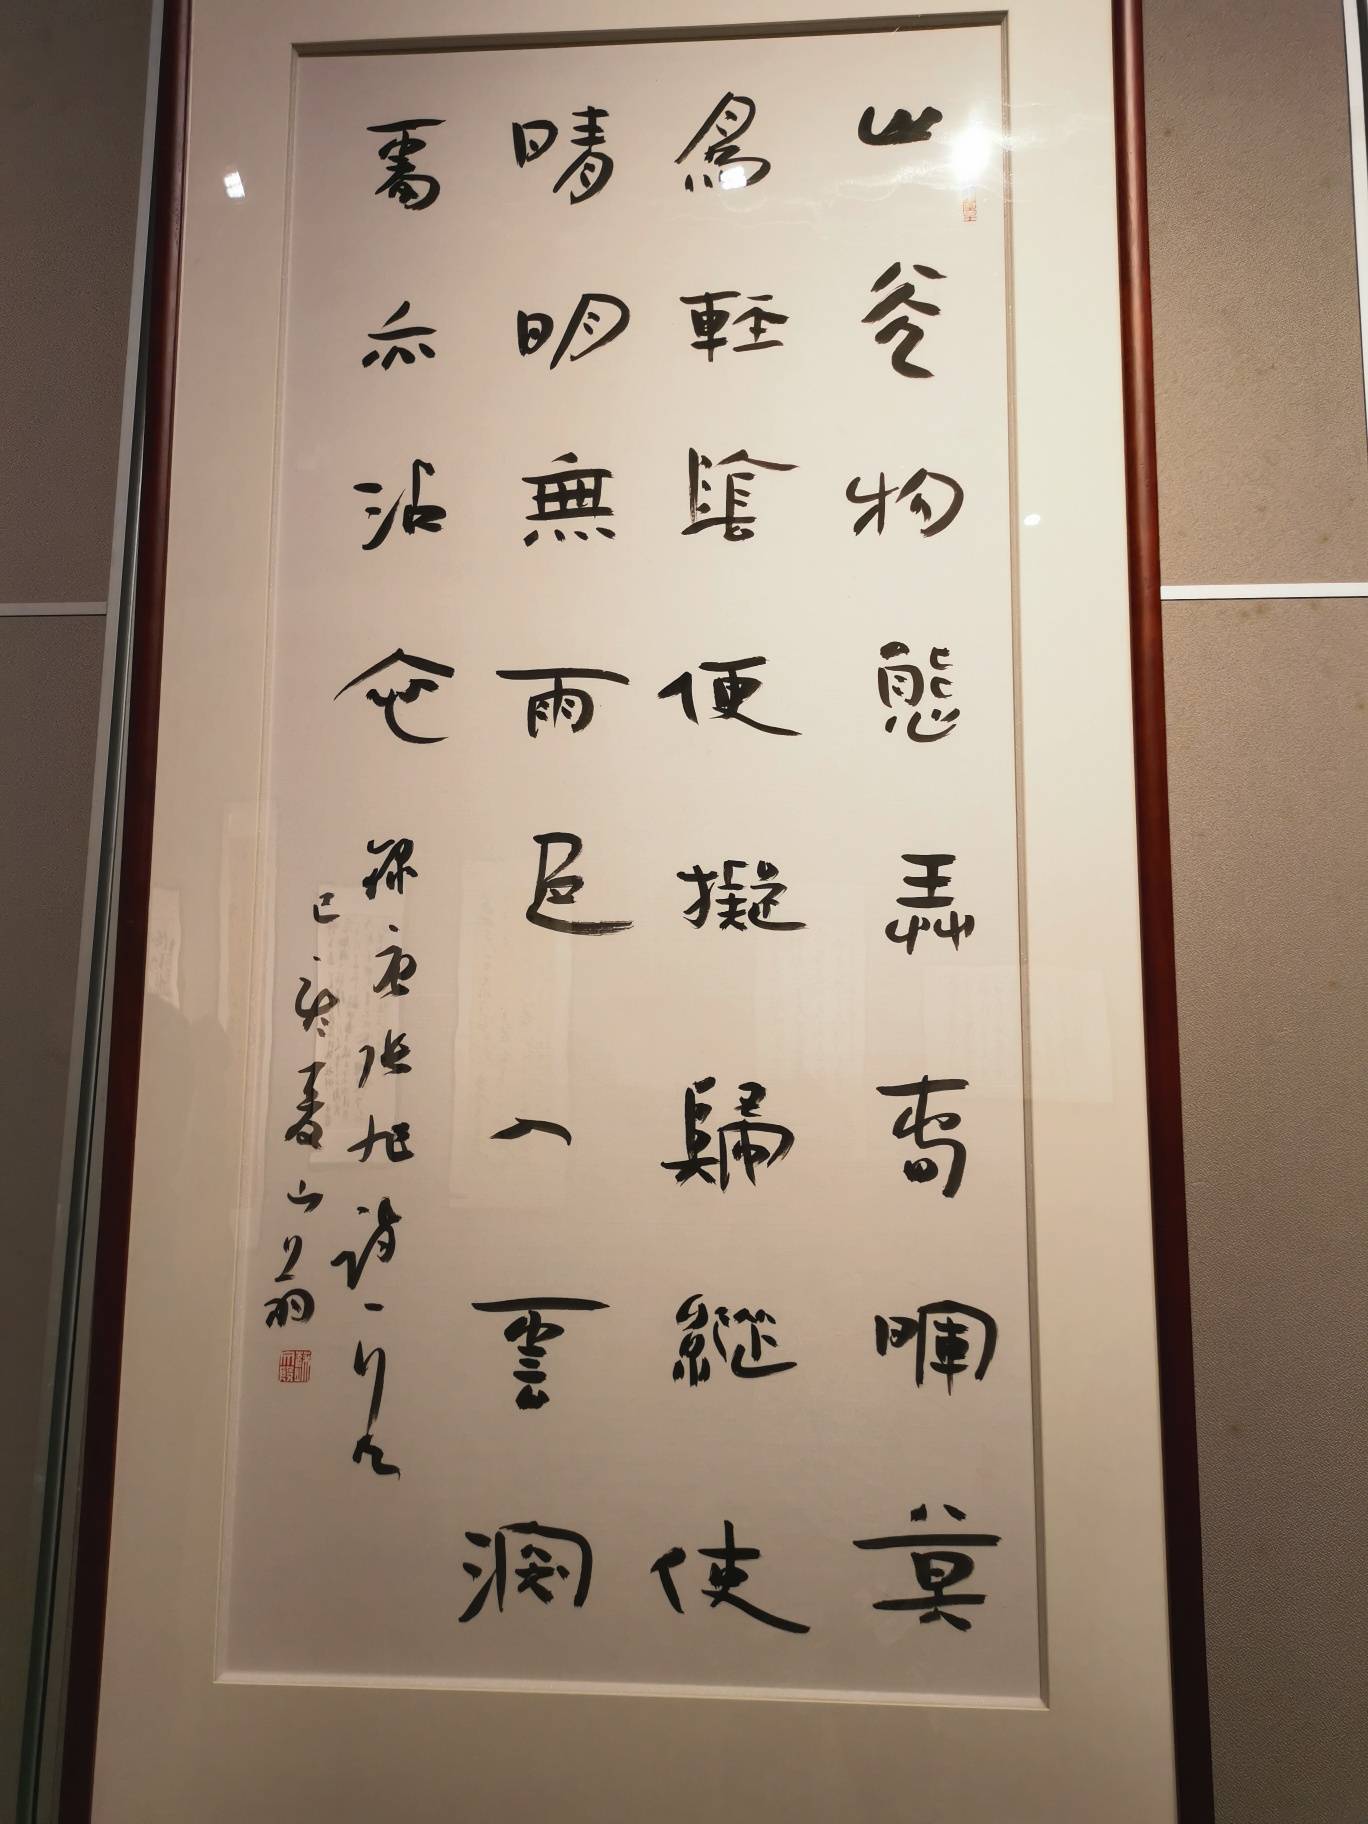 山光物態弄春暉莫
為輕陰便擬歸縱使
晴明無雨色入雲深
處亦沾衣
錄唐張旭詩一首
己亥夏